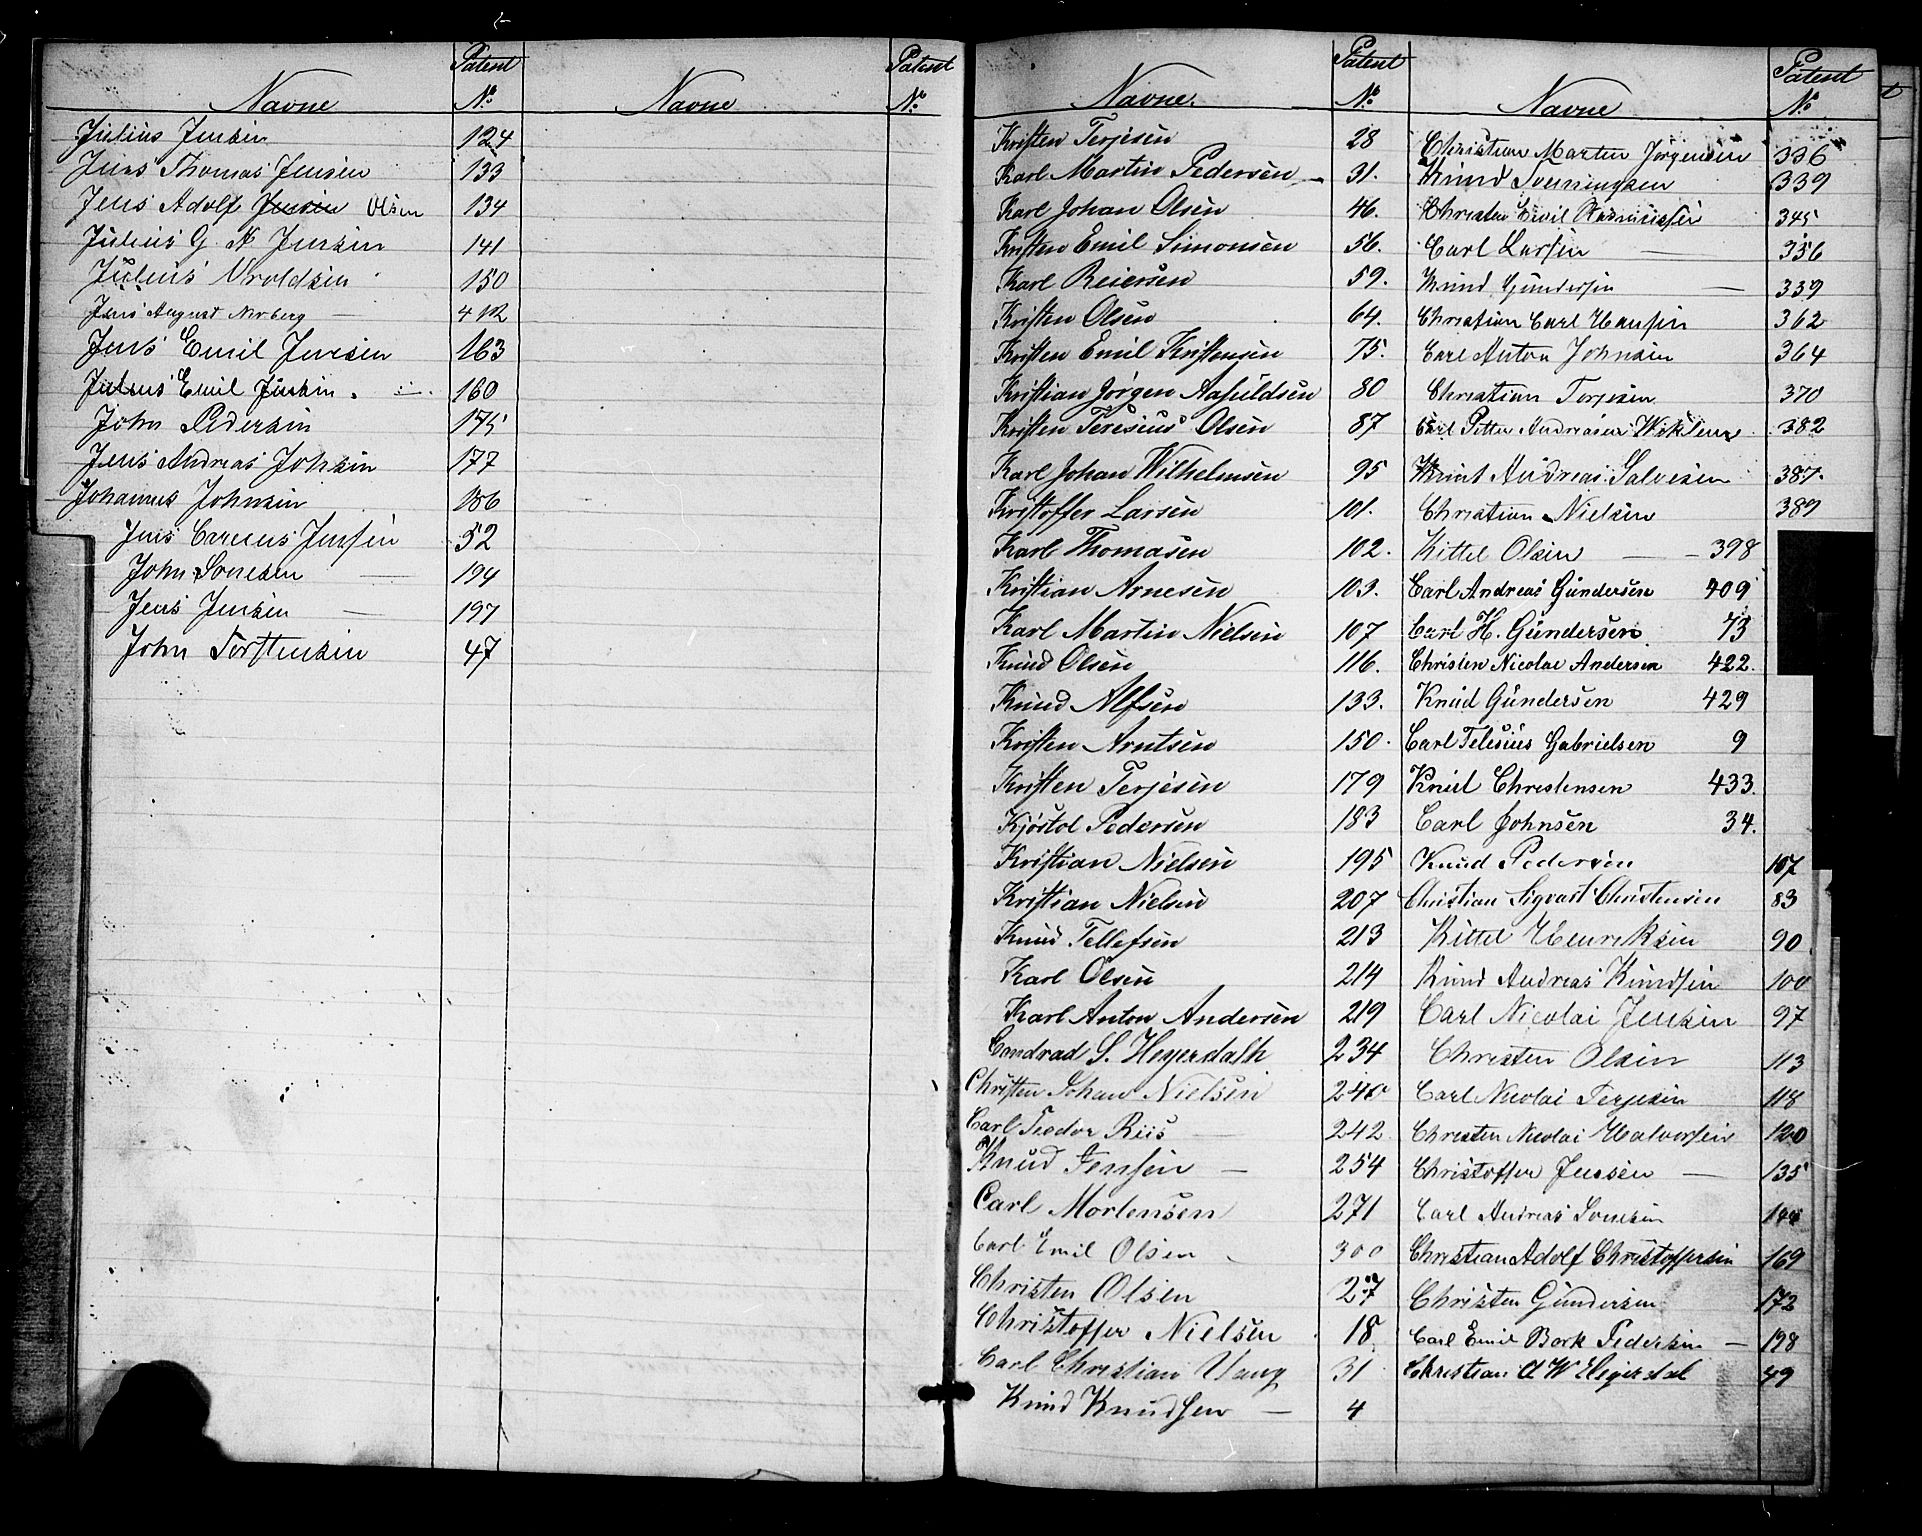 Navne Patent No. Navne Patent No.
Julius Jensen 124
Jens Thomas Jensen 133
Jens Adolf Jensen Olsen 134
Julius G. N Jensen 141
Julius Aroldsen 150
Jens August Norberg 412
Jens Emil Jensen 163
Julius Emil Jensen 160
John Pedersen 175
Jens Andreas Johnsen 177
Johannes Johnsen 186
Jens Carelius Jensen 52
John Sørensen 194
Jens Jensen 197
John Torstensen 47
Navne Patent No.
Kristen Terjesen 28
Karl Martin Pedersen 31.
Karl Johan Olsen 46.
Kristen Emil Simonsen 56.
Karl Reiersen 59.
Kristen Olsen 64.
Kristen Emil Kristensen 75.
Kristian Jørgen Aasuldsen 80
Kristen Teresius Olsen 87
Karl Johan Wilhelmsen 95
Kristoffer Larsen 101.
Karl Thomasen 102.
Kristian Arnesen 103.
Karl Martin Nielsen 107
Knud Olsen 116.
Knud Alfsen 133.
Kristen Arntsen 150.
Kristen Terjesen 179
Kjøstol Pedersen 183
Kristian Nielsen 195
Kristian Nielsen 207
Knud Tellefsen 213
Karl Olsen 214
Karl Anton Andersen 219
Condrad S. Heyerdalh 234
Christen Johan Nielsen 240
Carl Teodor Riis 242
Knud Jensen 254
Carl Mortensen 271
Carl Emil Olsen 300
Christen Olsen 27
Christoffer Nielsen 18
Carl Christian Vang 31
Knud Knudsen 4
Navne Patent No
Christian Martin Jørgensen 336
Knud Svenningsen 339
Christen Emil Rasmussen 345
Carl Larsen 356
Knud Gundersen 339
Christian Carl Hansen 362
Carl Anton Johnsen 364
Christian Terjesen 370
Carl Petter Andreasen Wiklund 382
Knut Andreas Salvesen 387.
Christian Nielsen 389
Kittel Olsen 398
Carl Andreas Gundersen 409
Carl H. Gundersen 73
Christen Nicolai Andersen 422.
Knud Gundersen 429
Carl Telesius Gabrielsen 9
Knud Christensen 433.
Carl Johnsen 34.
Knud Pedersen 107
Christian Sigvart Christensen 83
Kittel Henriksen 90
Knud Andreas Knudsen 100
Carl Nicolai Jensen 97
Christen Olsen 113
Carl Nicolai Terjesen 118
Christen Nicolai Halvorsen 120
Christoffer Jensen 135
Carl Andreas Sørensen 144
Christian Adolf Christoffersen 169
Christen Gundersen 172
Carl Emil Bork Pedersen 198
Christian A W Heyerdal 49